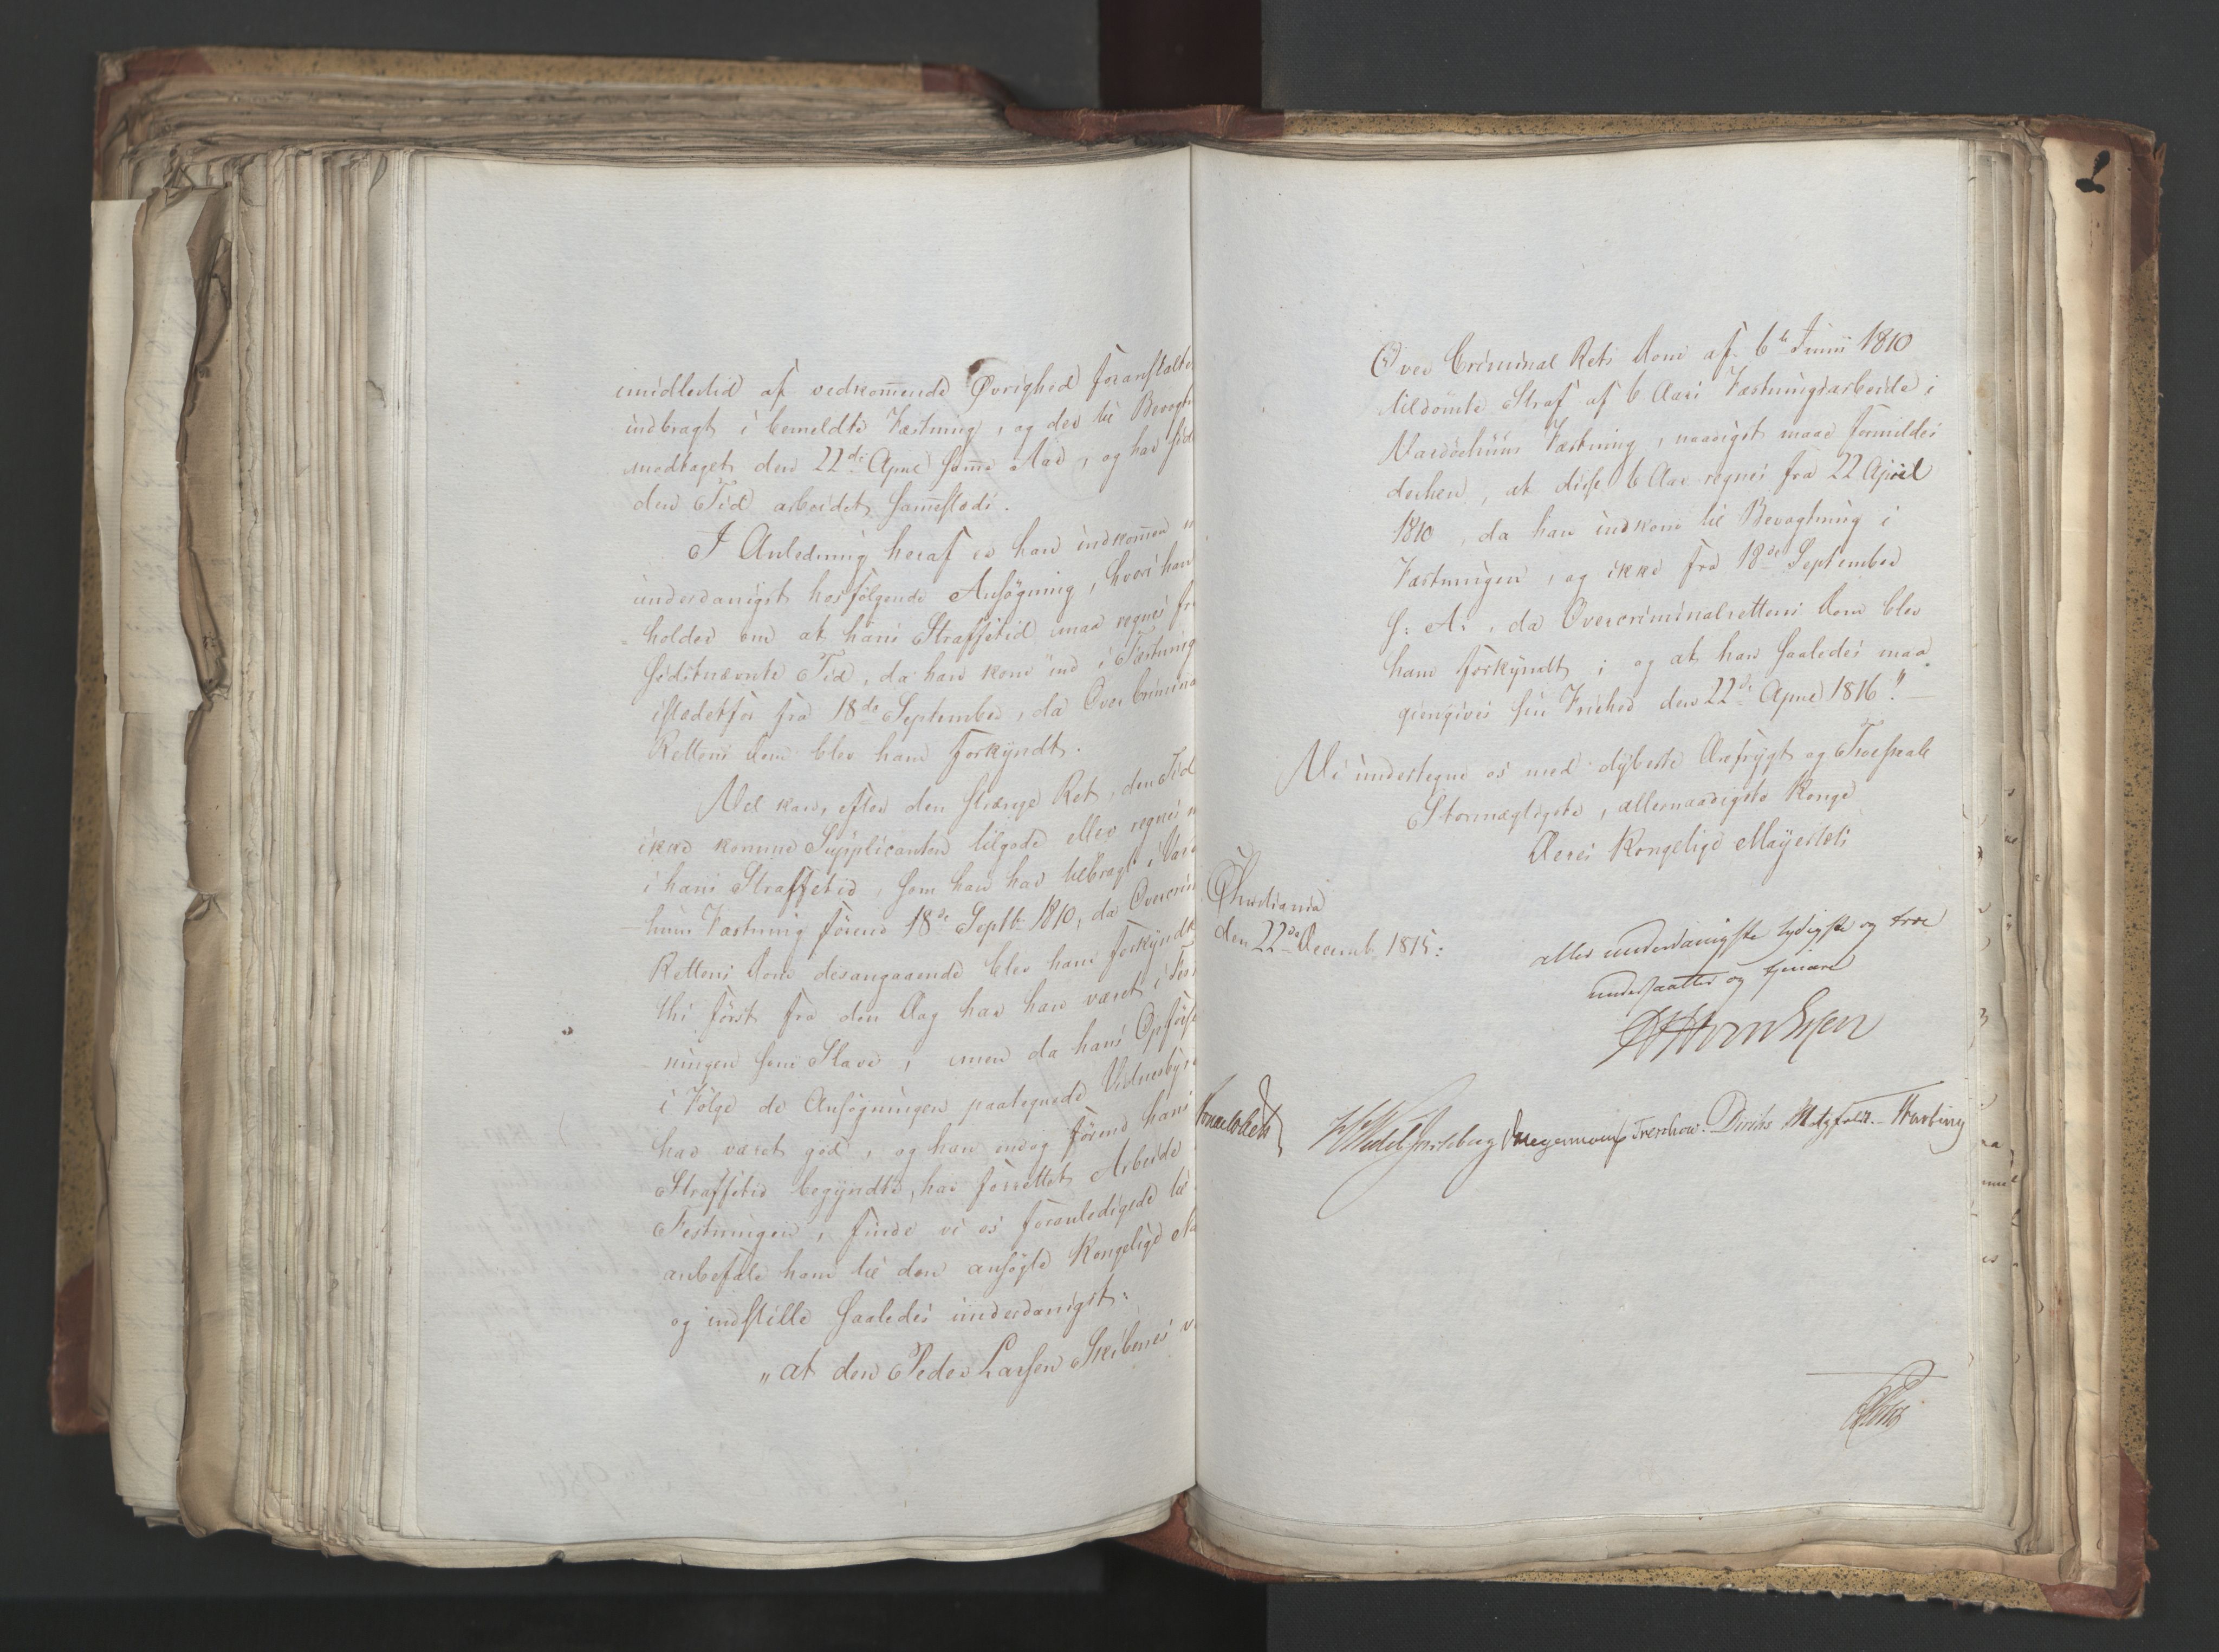 imidlertid af vedkom̅ende Øvrighed foranstaltet
indbragt i bemeldte Fæstning, og der til Bevogt
modtaget den 22de April sam̅e Aar, og har sid
den Tid arbeidet sam̅estedi.
I Anledning heraf er han indkom̅en
underdanigst hosfølgende Ansøgning, hvori han
holder om at hans Straffetid maa regnes fra
sidstnævnte Tid, da han kom ind i Fæstning
istedetfor fra 18de September, da Over Crimina
Rettens Dom blev ham forkyndt.
Vel kan, efter den strænge Ret, den Tid
ikke komme Supplicanten tilgode eller regnes
i hans Straffetid, som han har tilbragt i Vard
huus Fæstning førend 18de Septbr 1810, da Overcrim
Rettens Dom desangaaende blev ham forkyndt
thi først fra den Dag har han været i Fæst
ningen som Slave, men da hans Opførs
i Følge de Ansøgningen paategnede Vidnesbyrd
har været god, og han endog førend hans
Straffetid begyndte, har forrettet Arbeide
Festningen, finde vi os foranledigede til
anbefale ham til den ansøgte Kongelige Na
og indstille saaledes underdanigst:
„at den Peder Larsen Skibenes v
Over Criminal Rets Dom af 6te Junii 1810
tildømte Straf af 6 Aars Fæstningsarbeide i
Vardøehuus Fæstning, naadigst maae formildes
derhen, at disse 6 Aar regnes fra 22 April
1810, da han indkom til Bevogtning i
Fæstningen, og ikke fra 18de September
s: A:, da Overcriminalrettens Dom blev
ham forkyndt; og at han saaledes maa
giengives sin Frihed den 22de April 1816."
Vi undertegne os med dybeste Ærefrygt og Troeskab
Stormægtigste, allernaadigste Konge
Deres Kongelige Mayestæts
Christiania
den 22de Decemb. 1815:
aller underdanigste lydigste og troe
undersaatter og tjenere
Sommerhielm
HWedel Jarlsberg Hegermann Treschow. Diriks Motzfeldt. Hartvig